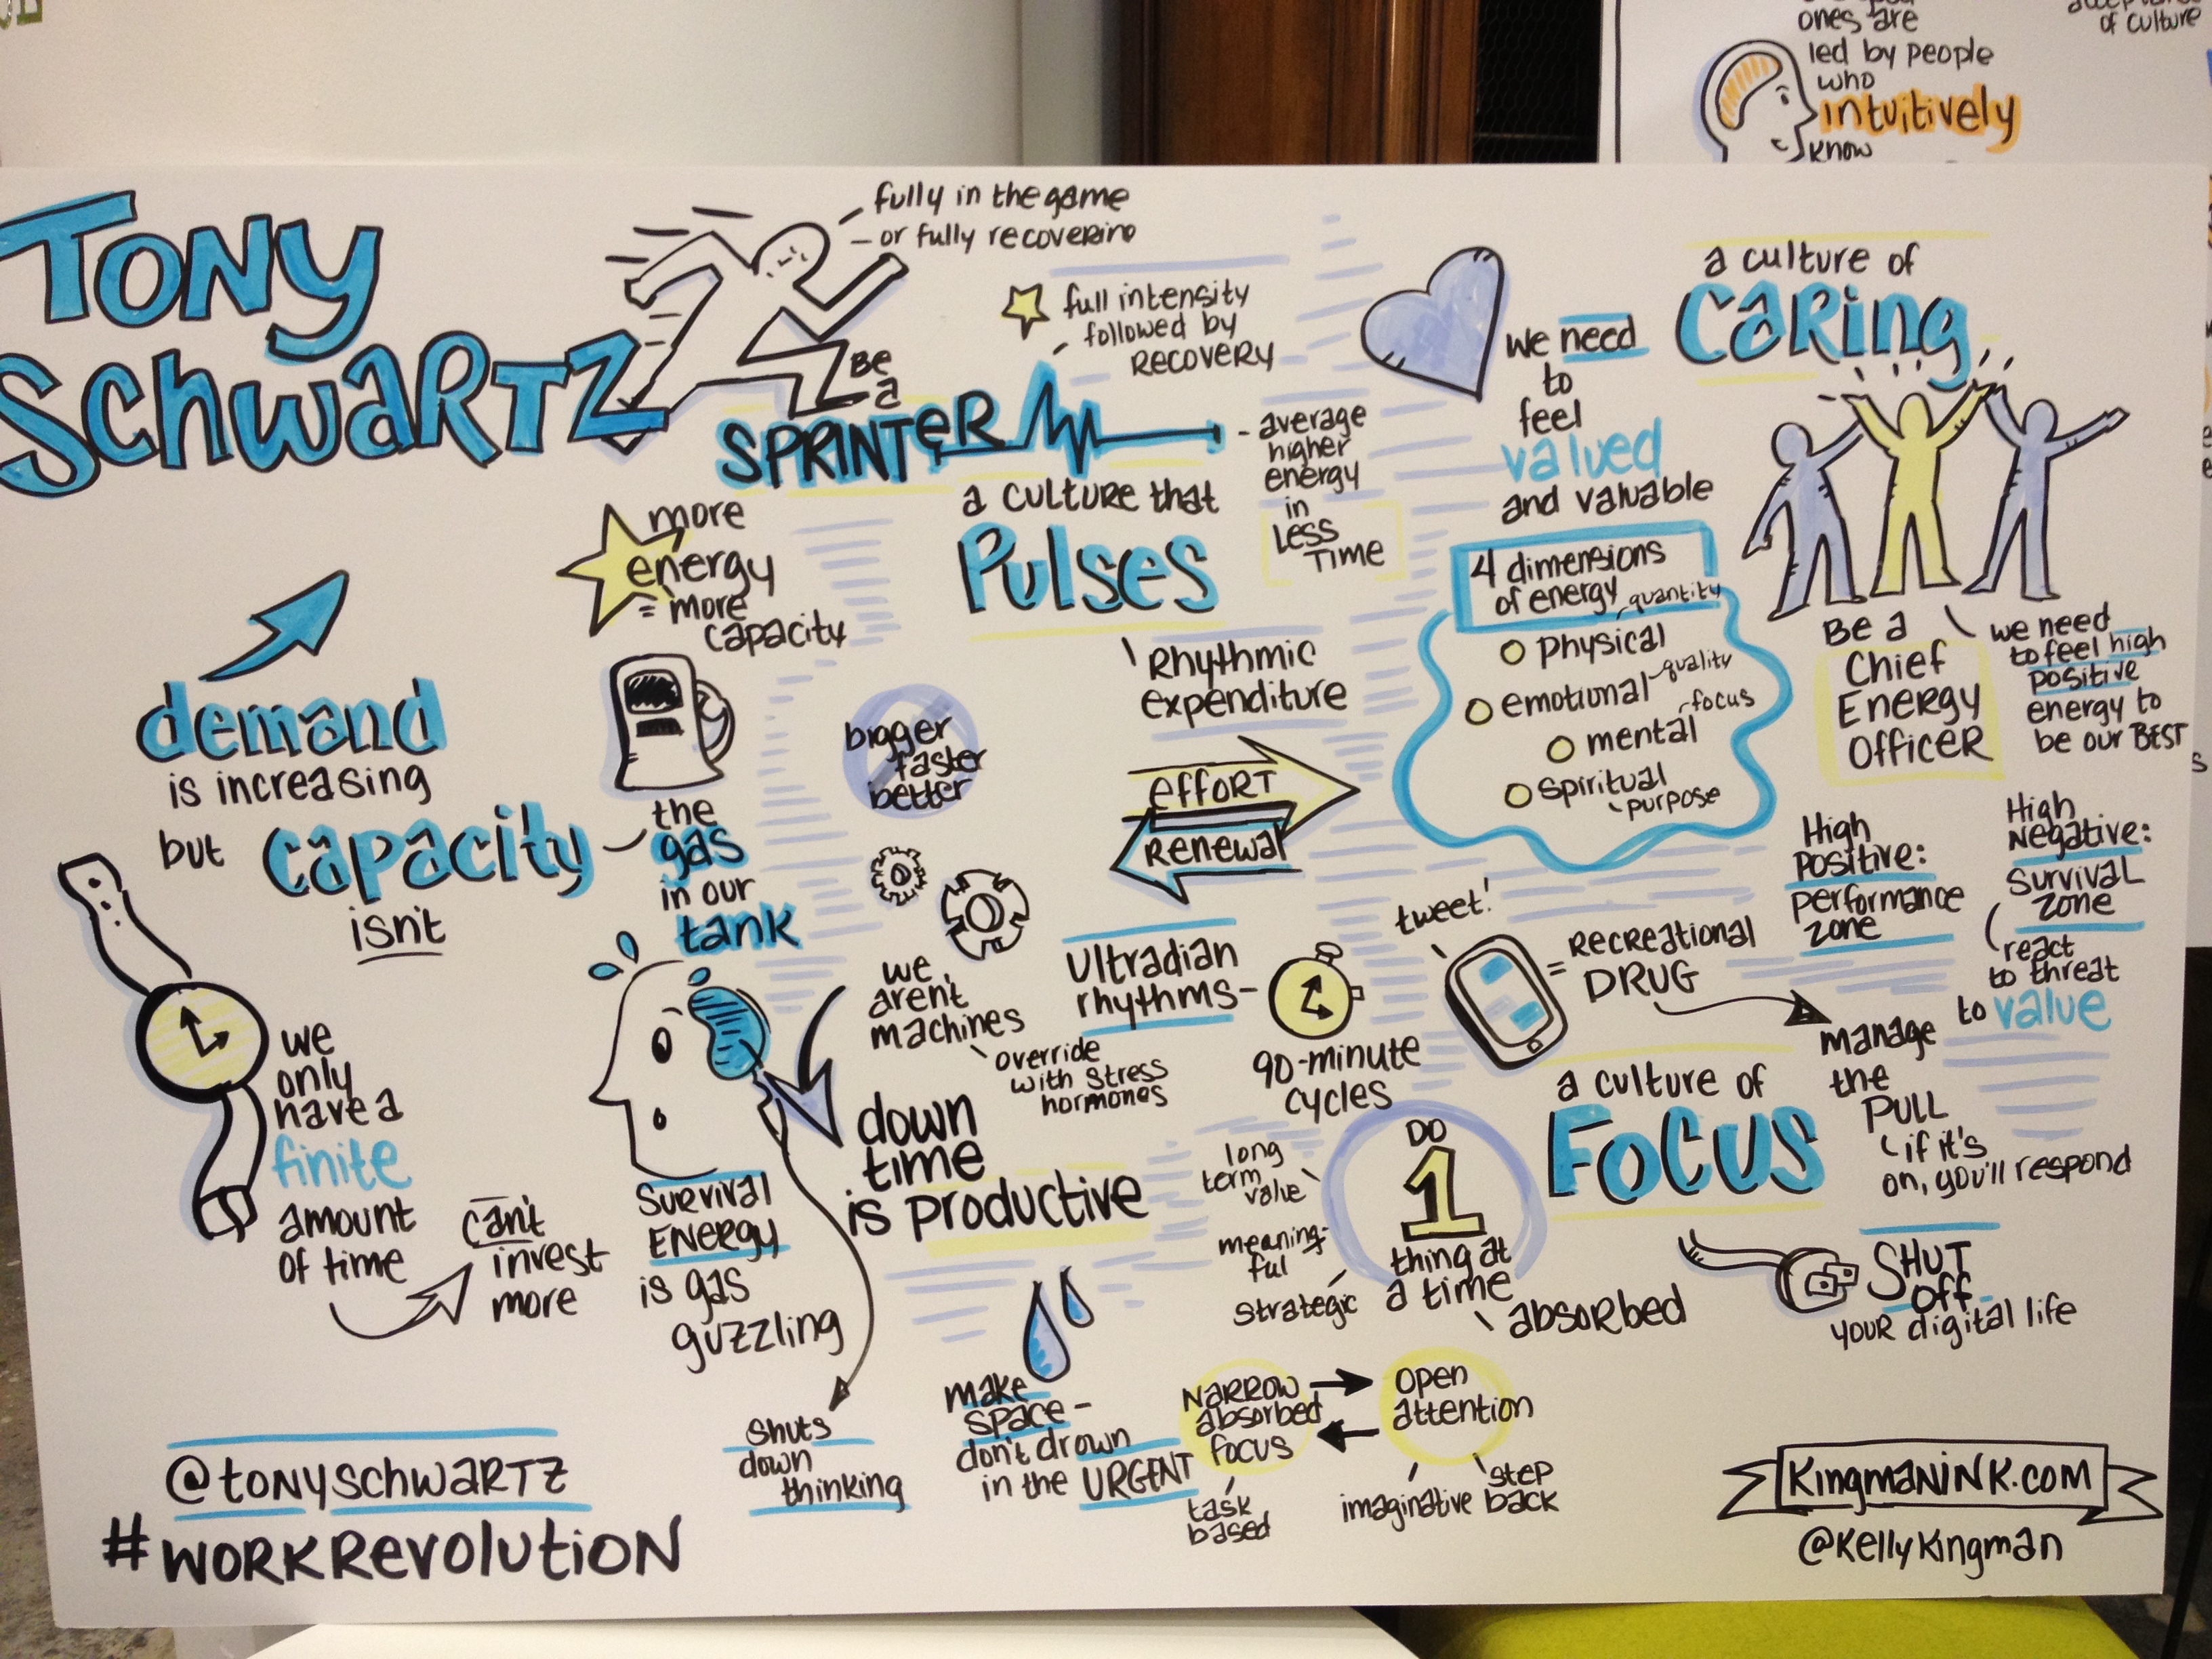 ones are
led by people
who
intuitively
know
of culture
TONY
SCHWARTZ
fully in the game
- or fully recovering
BE
a
SPRINTER
full intensity
followed by
RECOVERY
- average
higher
energy
in
LESS
TIME
a culture that
Pulses
Rhythmic
expenditure
EFFORT
Renewal
more
energy
= more
capacity
demand
is increasing
but capacity
isn't
the
gas
in our
tank
we
only
have a
finite
amount
of time
can't
invest
more
bigger
faster
better
we
aren't
machines
override
with stress
hormones
Ultradian
rhythms-
90-minute
cycles
down
time
is productive
SURVIVAL
ENERGY
is gas
guzzling
shuts
down
thinking
make
space-
don't drown
in the URGENT
a culture of
CARING
we need
to
feel
valued
and valuable
4 dimensions
of energy
quantity
Physical
quality
emotional
focus
mental
Spiritual
purpose
BE a
Chief
Energy
Officer
we need
to feel high
positive
energy to
be our BEST
High
Positive:
performance
zone
High
Negative:
Survival
zone
react
to threat
to value
tweet!
= RECREATIONAL
DRUG
manage
the
PULL
if it's
on, you'll respond
a culture of
FOCUS
DO
1
thing at
a time
long
term
value
meaning-
ful
strategic
absorbed
SHUT
off
your digital life
NARROW
absorbed
focus
task
based
open
attention
imaginative
step
back
@tonyschwartz
#WORKREVOLUTION
KINGMANINK.COM
@KellyKingman